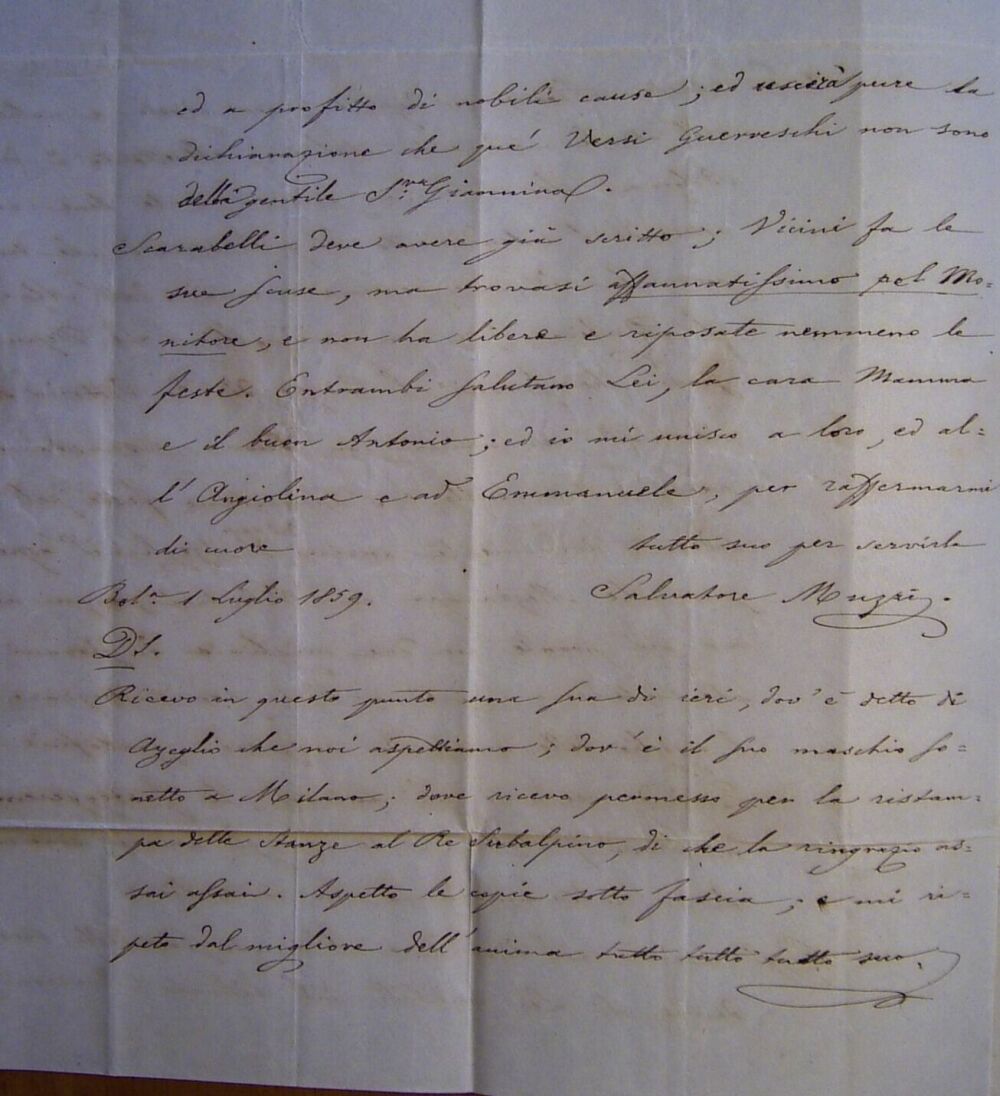 ed a profitto di nobili cause; ed uscirà pure la
dichiarazione che que' Versi Guerreschi non sono
della gentile S.ra Giannina.
Scarabelli deve avere già scritto; Vicini fa le
sue scuse, ma trovasi affannatissimo pel Mo=
nitore, e non ha libere e riposate nemmeno le
feste. Entrambi salutano Lei, la cara Mamma
e il buon Antonio; ed io mi unisco a loro, ed al=
l'Angiolina e ad Emmanuele, per raffermarmi
di cuore tutto suo per servirla
Bol.a 1 Luglio 1859. Salvatore Muzzi.
P.S.
Ricevo in questo punto una sua di ieri, dov'è detto di
Azeglio che noi aspettiamo; dov'è il suo maschio so=
netto a Milano; dove ricevo permesso per la ristam=
pa delle Stanze al Re Subalpino, di che la ringrazio as=
sai assai. Aspetto le copie sotto fascia; e mi ri=
peto dal migliore dell'anima tutto tutto tutto suo.